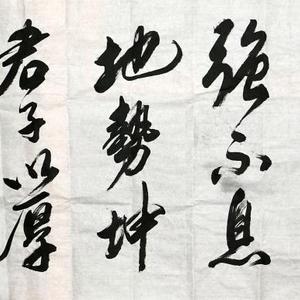 強不息
地勢坤
君子以厚